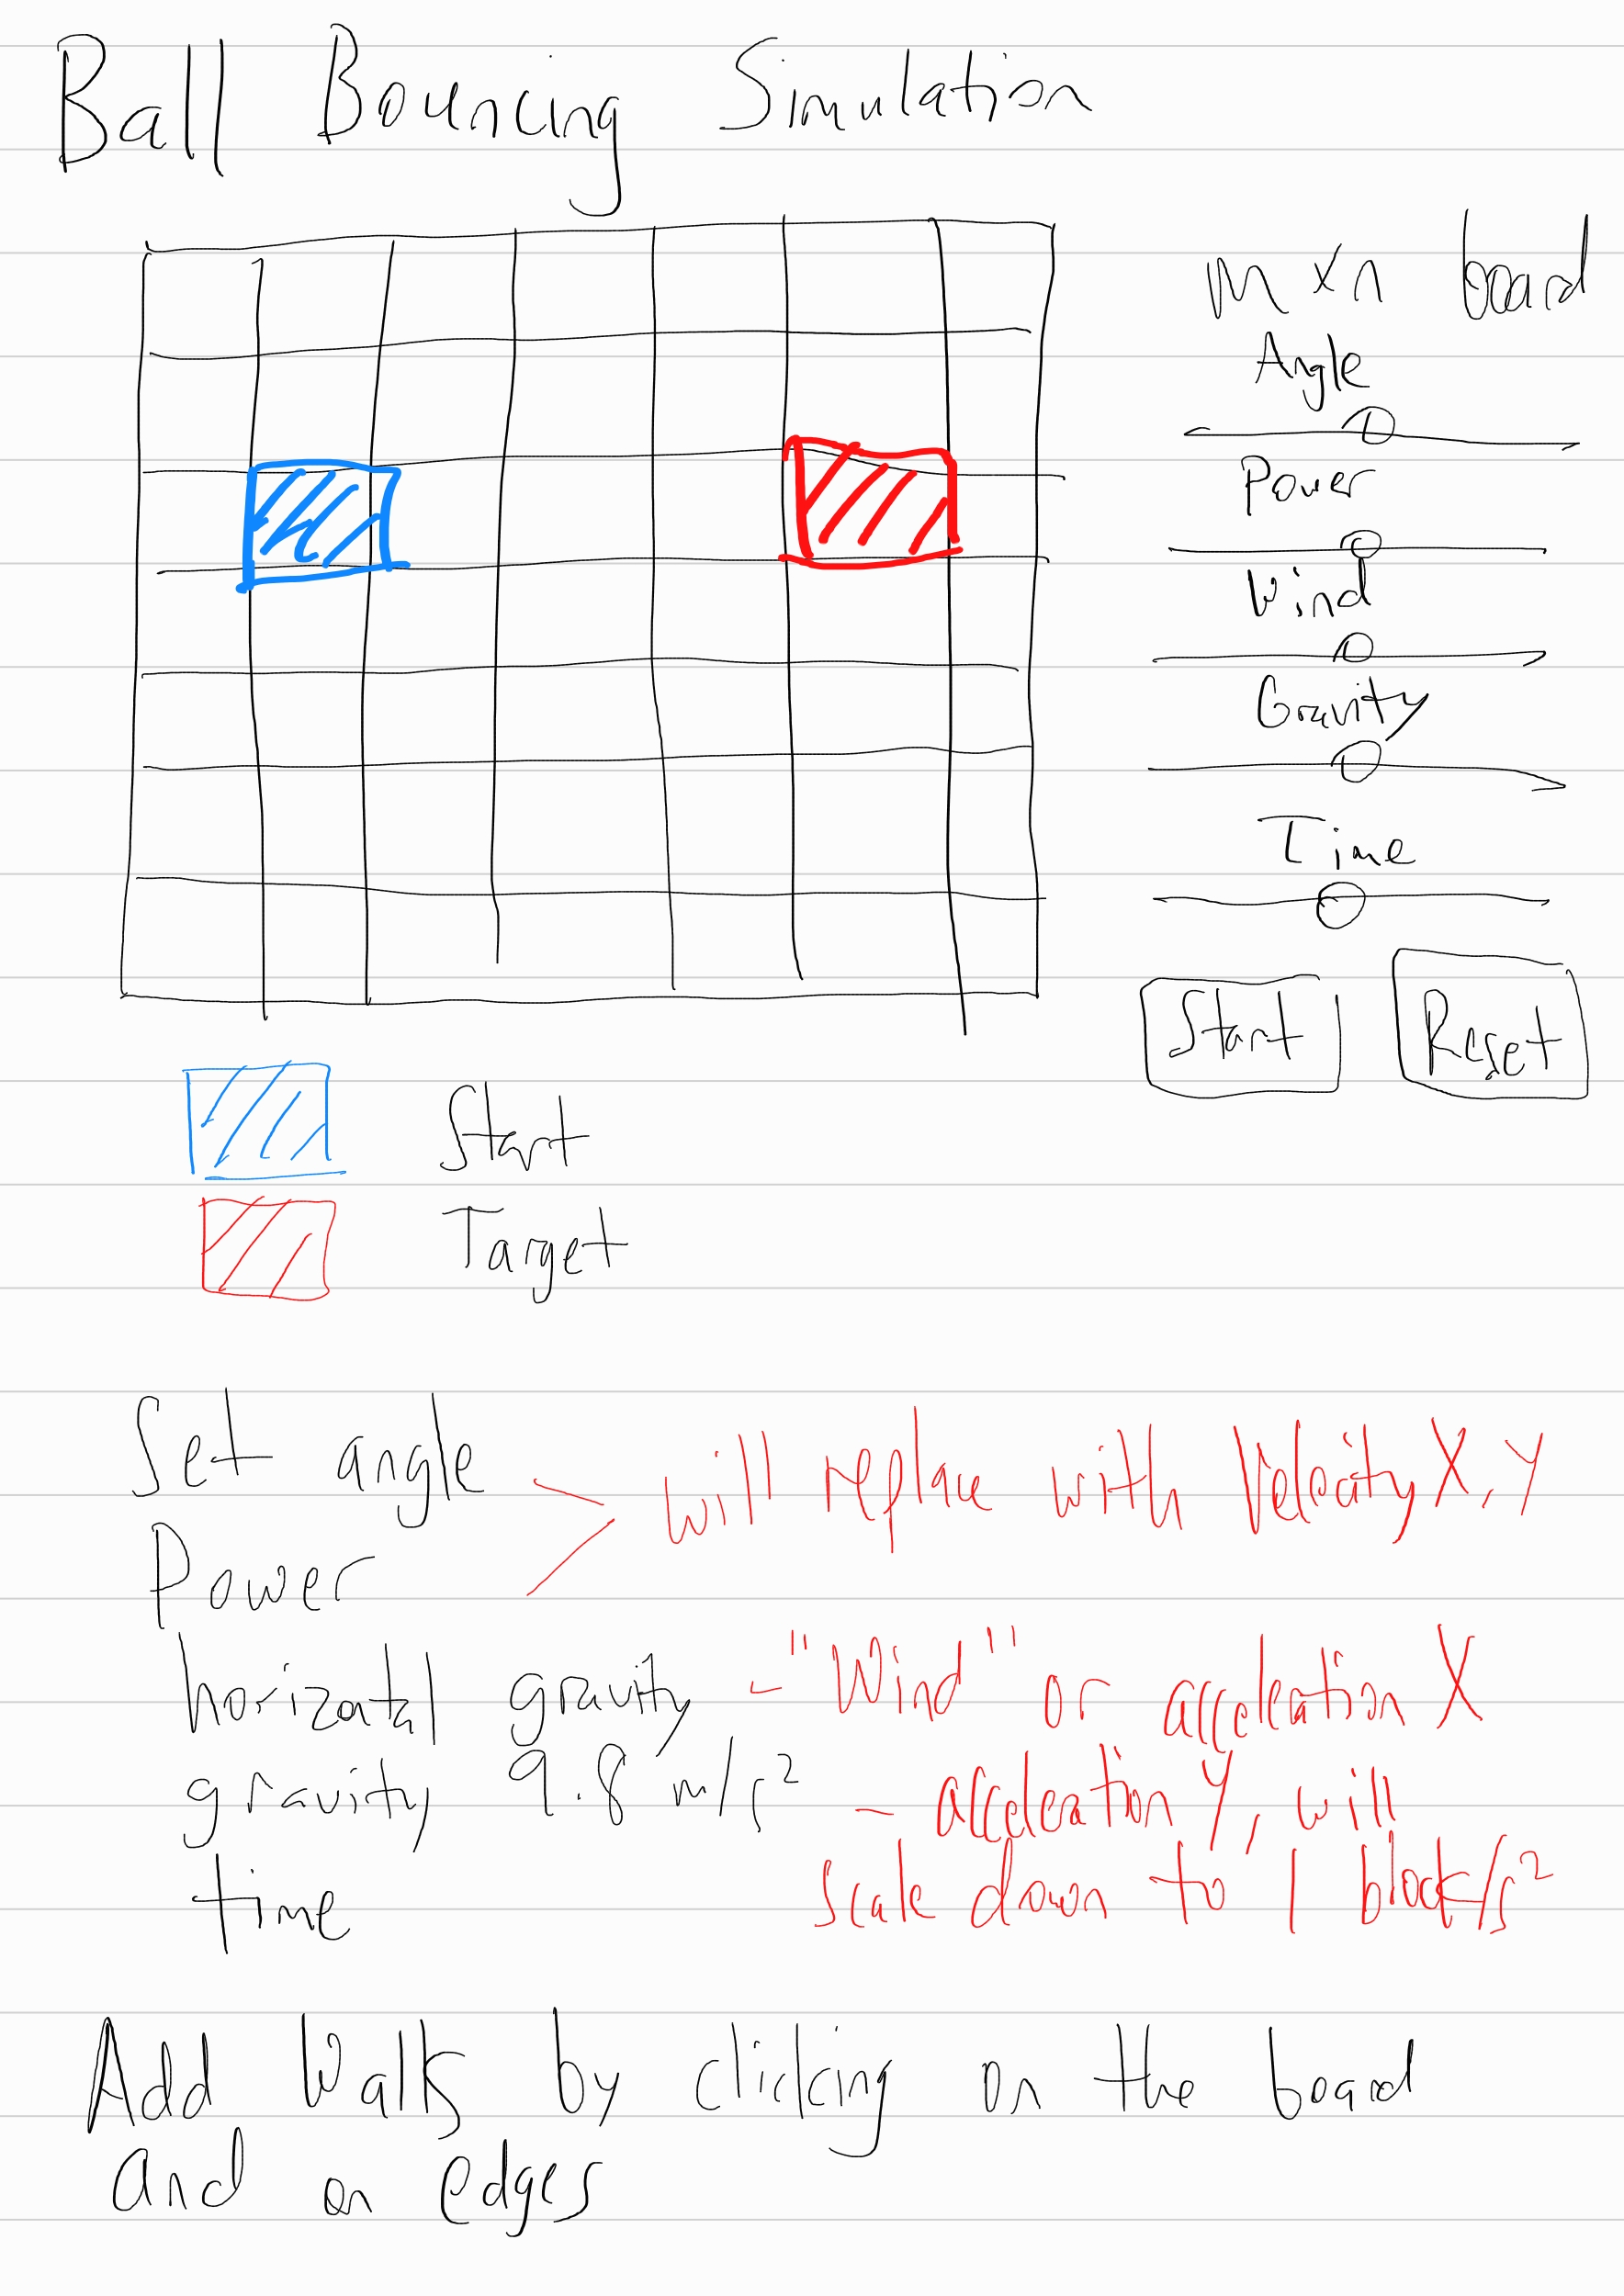 Ball Bouncing Simulation
m x n board
Angle
Power
Wind
Gravity
Time
Start Reset
Start
Target
Set angle
Power
will replace with Velocity X, Y
horizontal gravity - "Wind" or acceleration X
gravity 9.8 m/s² - acceleration Y, will
scale down to 1 block/s²
time
Add Walls by clicking on the board
and on edges